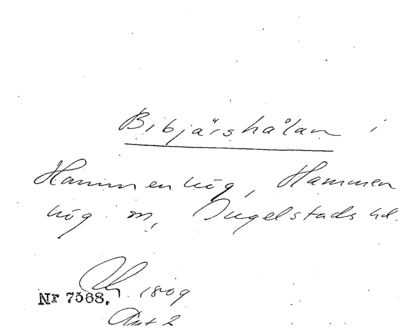 Bibjärshålan i
Hammenhög, Hammen
hög sn, Ingelstads hd.
1809
Nr 7568.
Akt 2